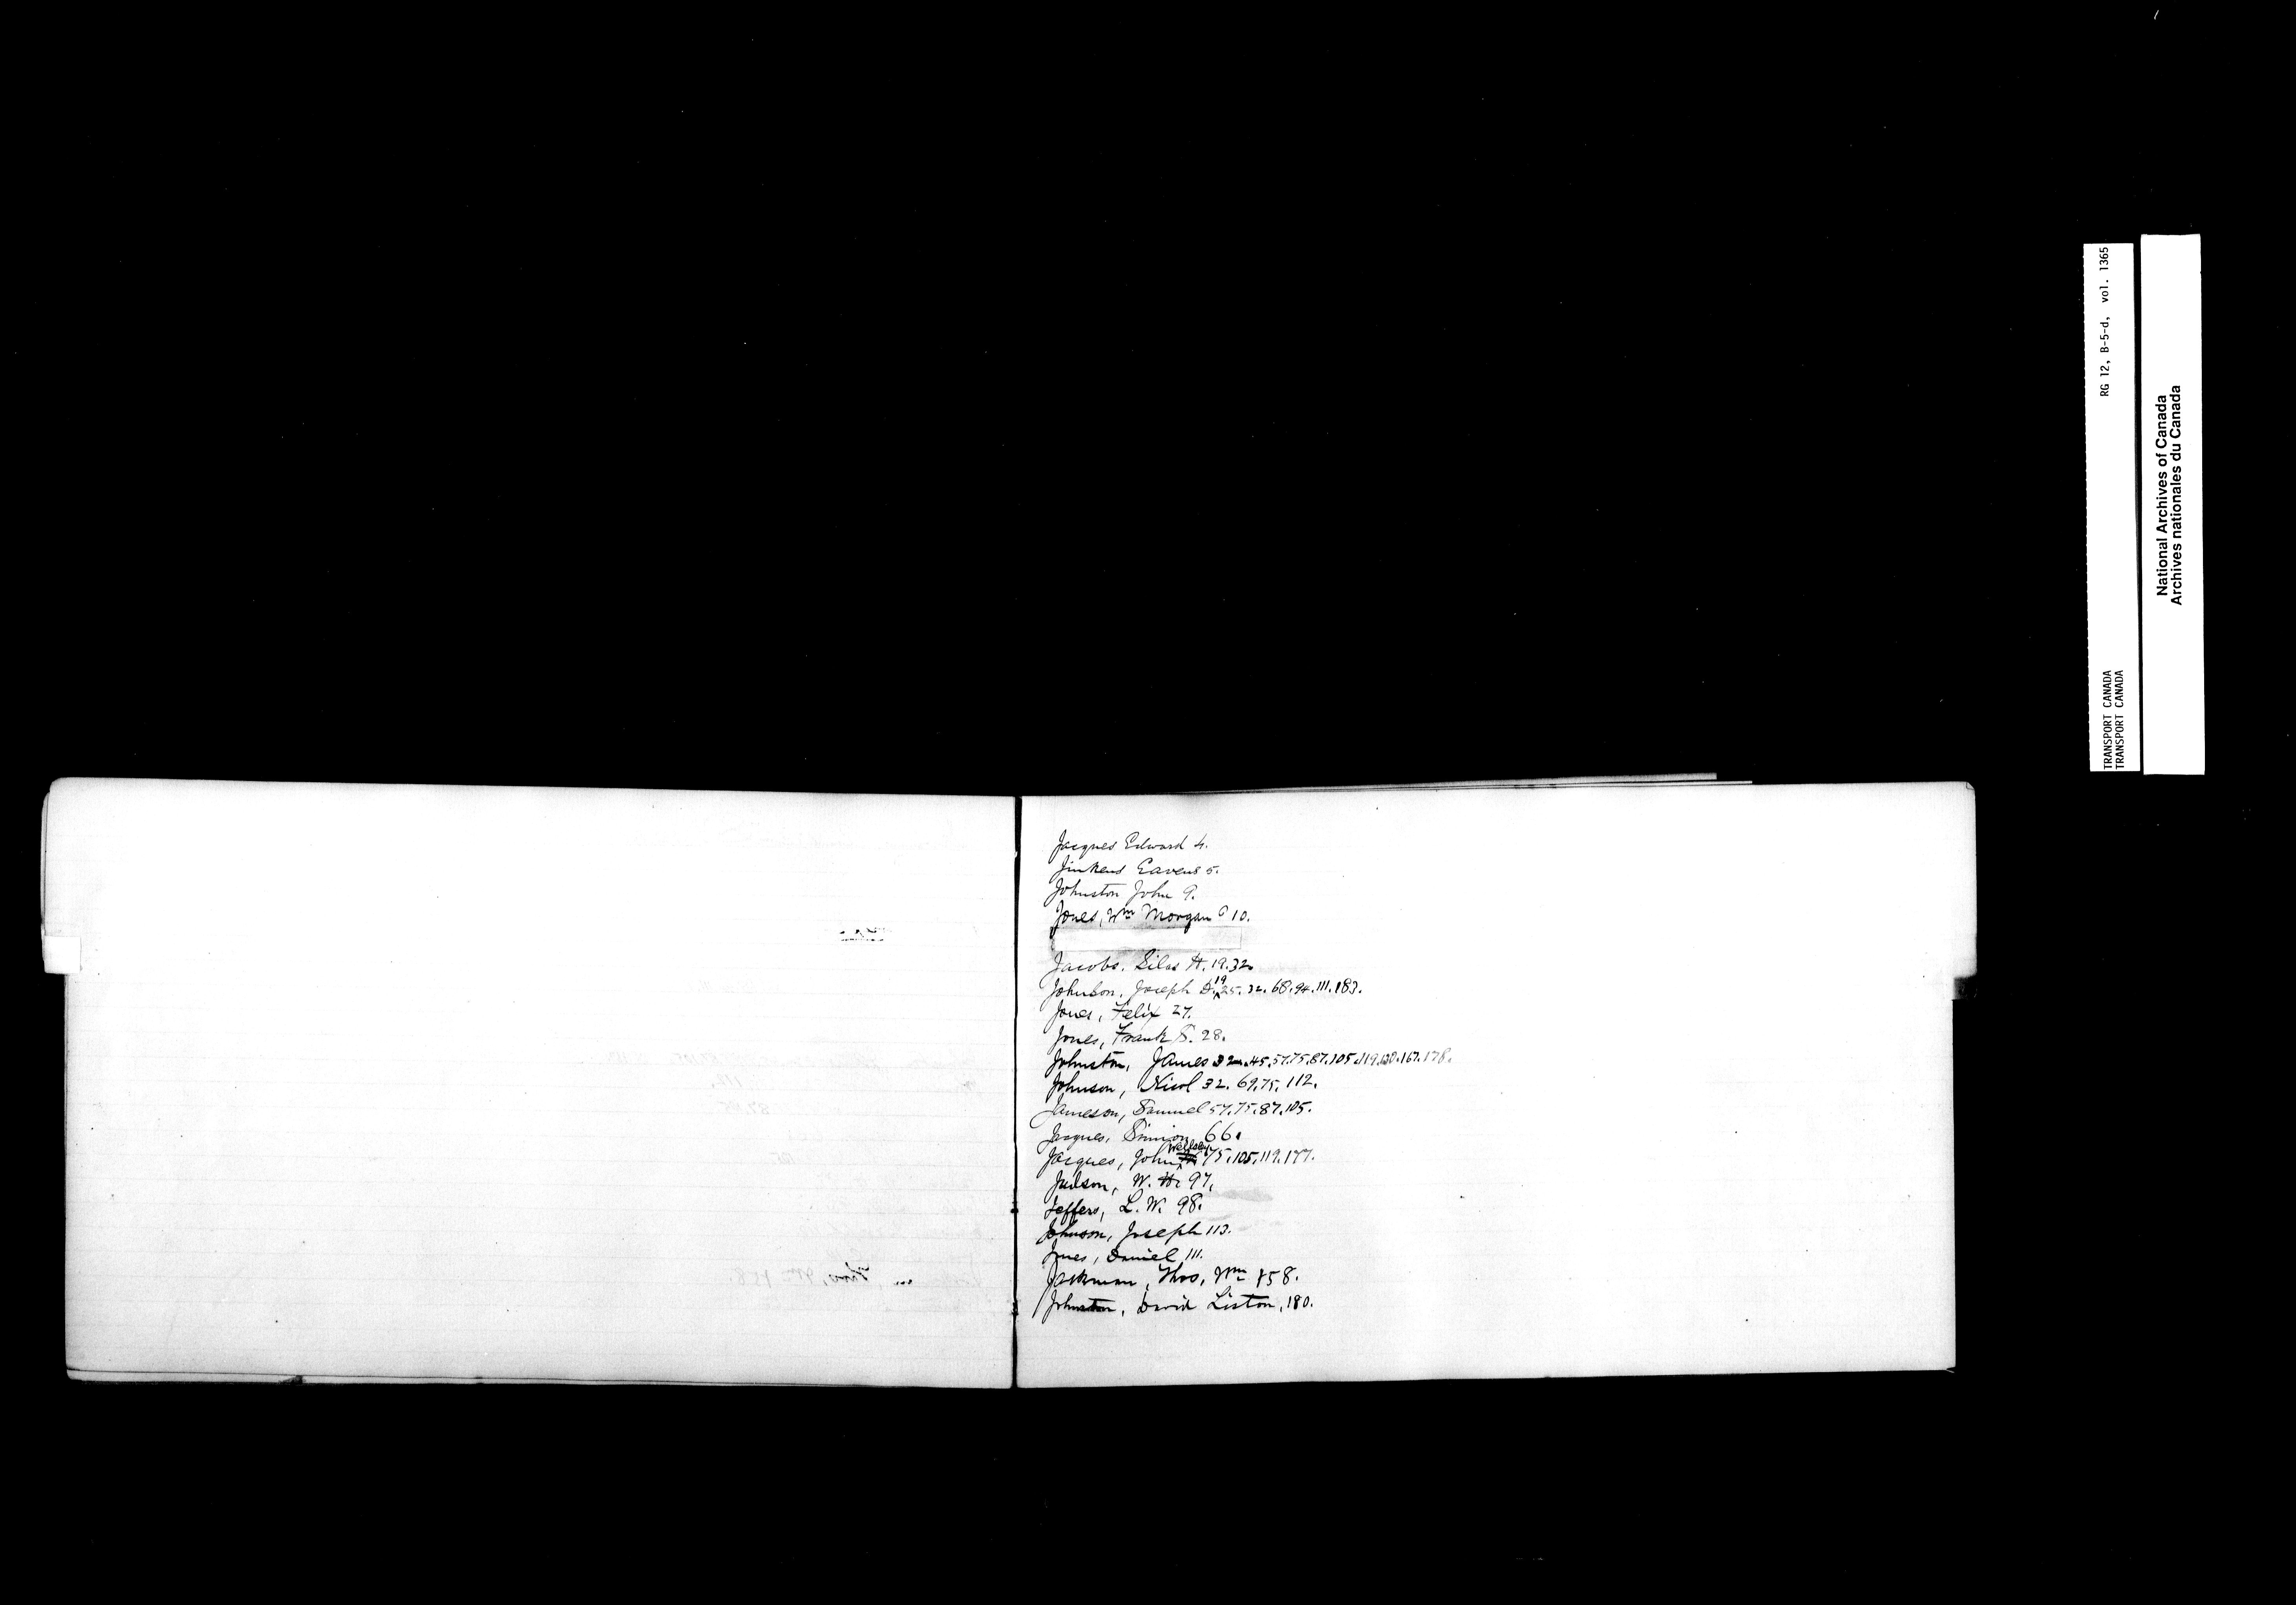 Jacques Edward 4.
Jinkens Eavens 5.
Johnston John 9.
Jones, Wm Morgan 10.
Jacobs. Silas H. 19.32.
Johnson. Joseph D. 19 25. 32. 68. 94. 111. 183.
Jones, Felix 27.
Jones, Frank S. 28.
Johnston, James 32.45.57.75.87.105.119.130.167.178.
Johnson, Nicol 32. 69.75. 112.
Jameson, Samuel 57.75.87.105.
Jacques, Simion 66.
Jacques, John 75.105.119.177.
Judson, W. H. 97.
Jeffers, L. W. 98.
Johnson, Joseph 113.
Jones, Daniel 111.
Jackman, Thos, Wm 158.
Johnston, David Liston, 180.
RG 12, B-5-d, vol. 1365
TRANSPORT CANADA
TRANSPORT CANADA
National Archives of Canada
Archives nationales du Canada